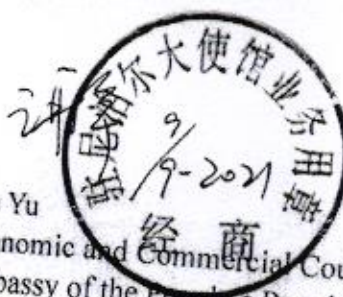 驻尼泊尔大使馆业务用章
9/9-2021
经商
Yu
nomic and Commercial Cou
bassy of the